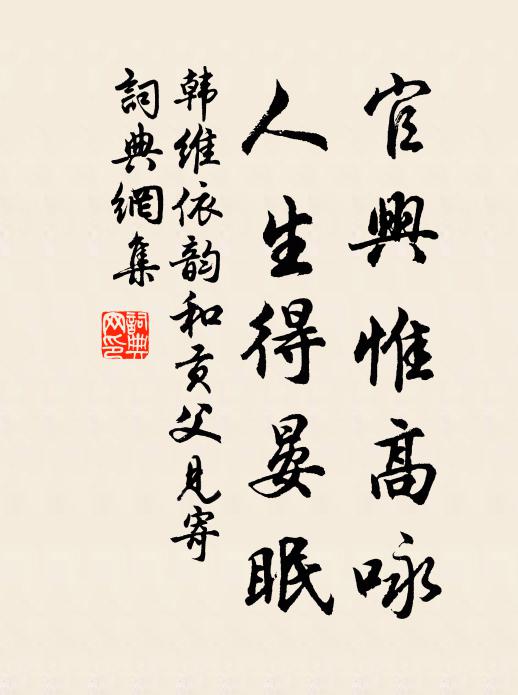 官興惟高咏
人生得晏眠
韩维依韵和贡父见寄
詞典網集
詞典
网印